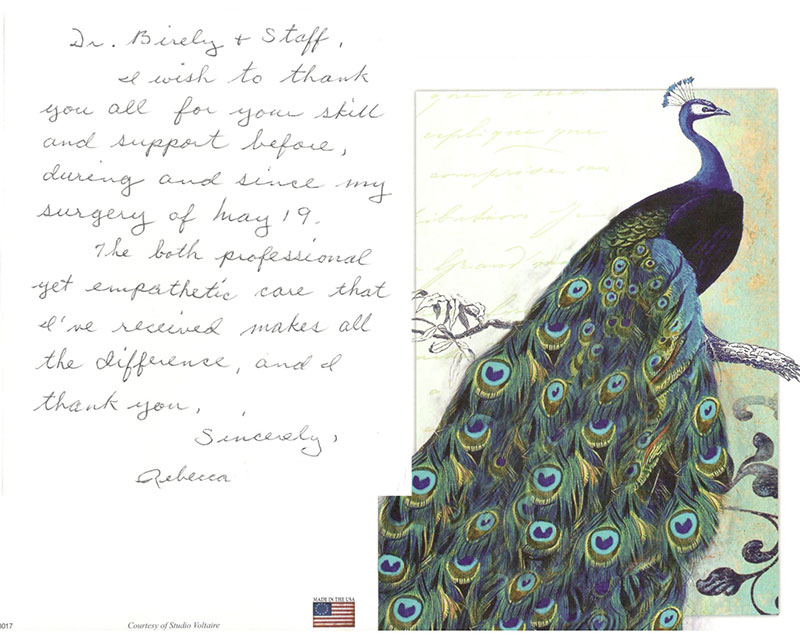 Dr. Birely & Staff,
I wish to thank
you all for your skill
and support before,
during and since my
surgery of May 19.
The both professional
yet empathetic care that
I've received makes all
the difference, and I
thank you.
Sincerely,
Rebecca
MADE IN THE USA
0017
Courtesy of Studio Voltaire